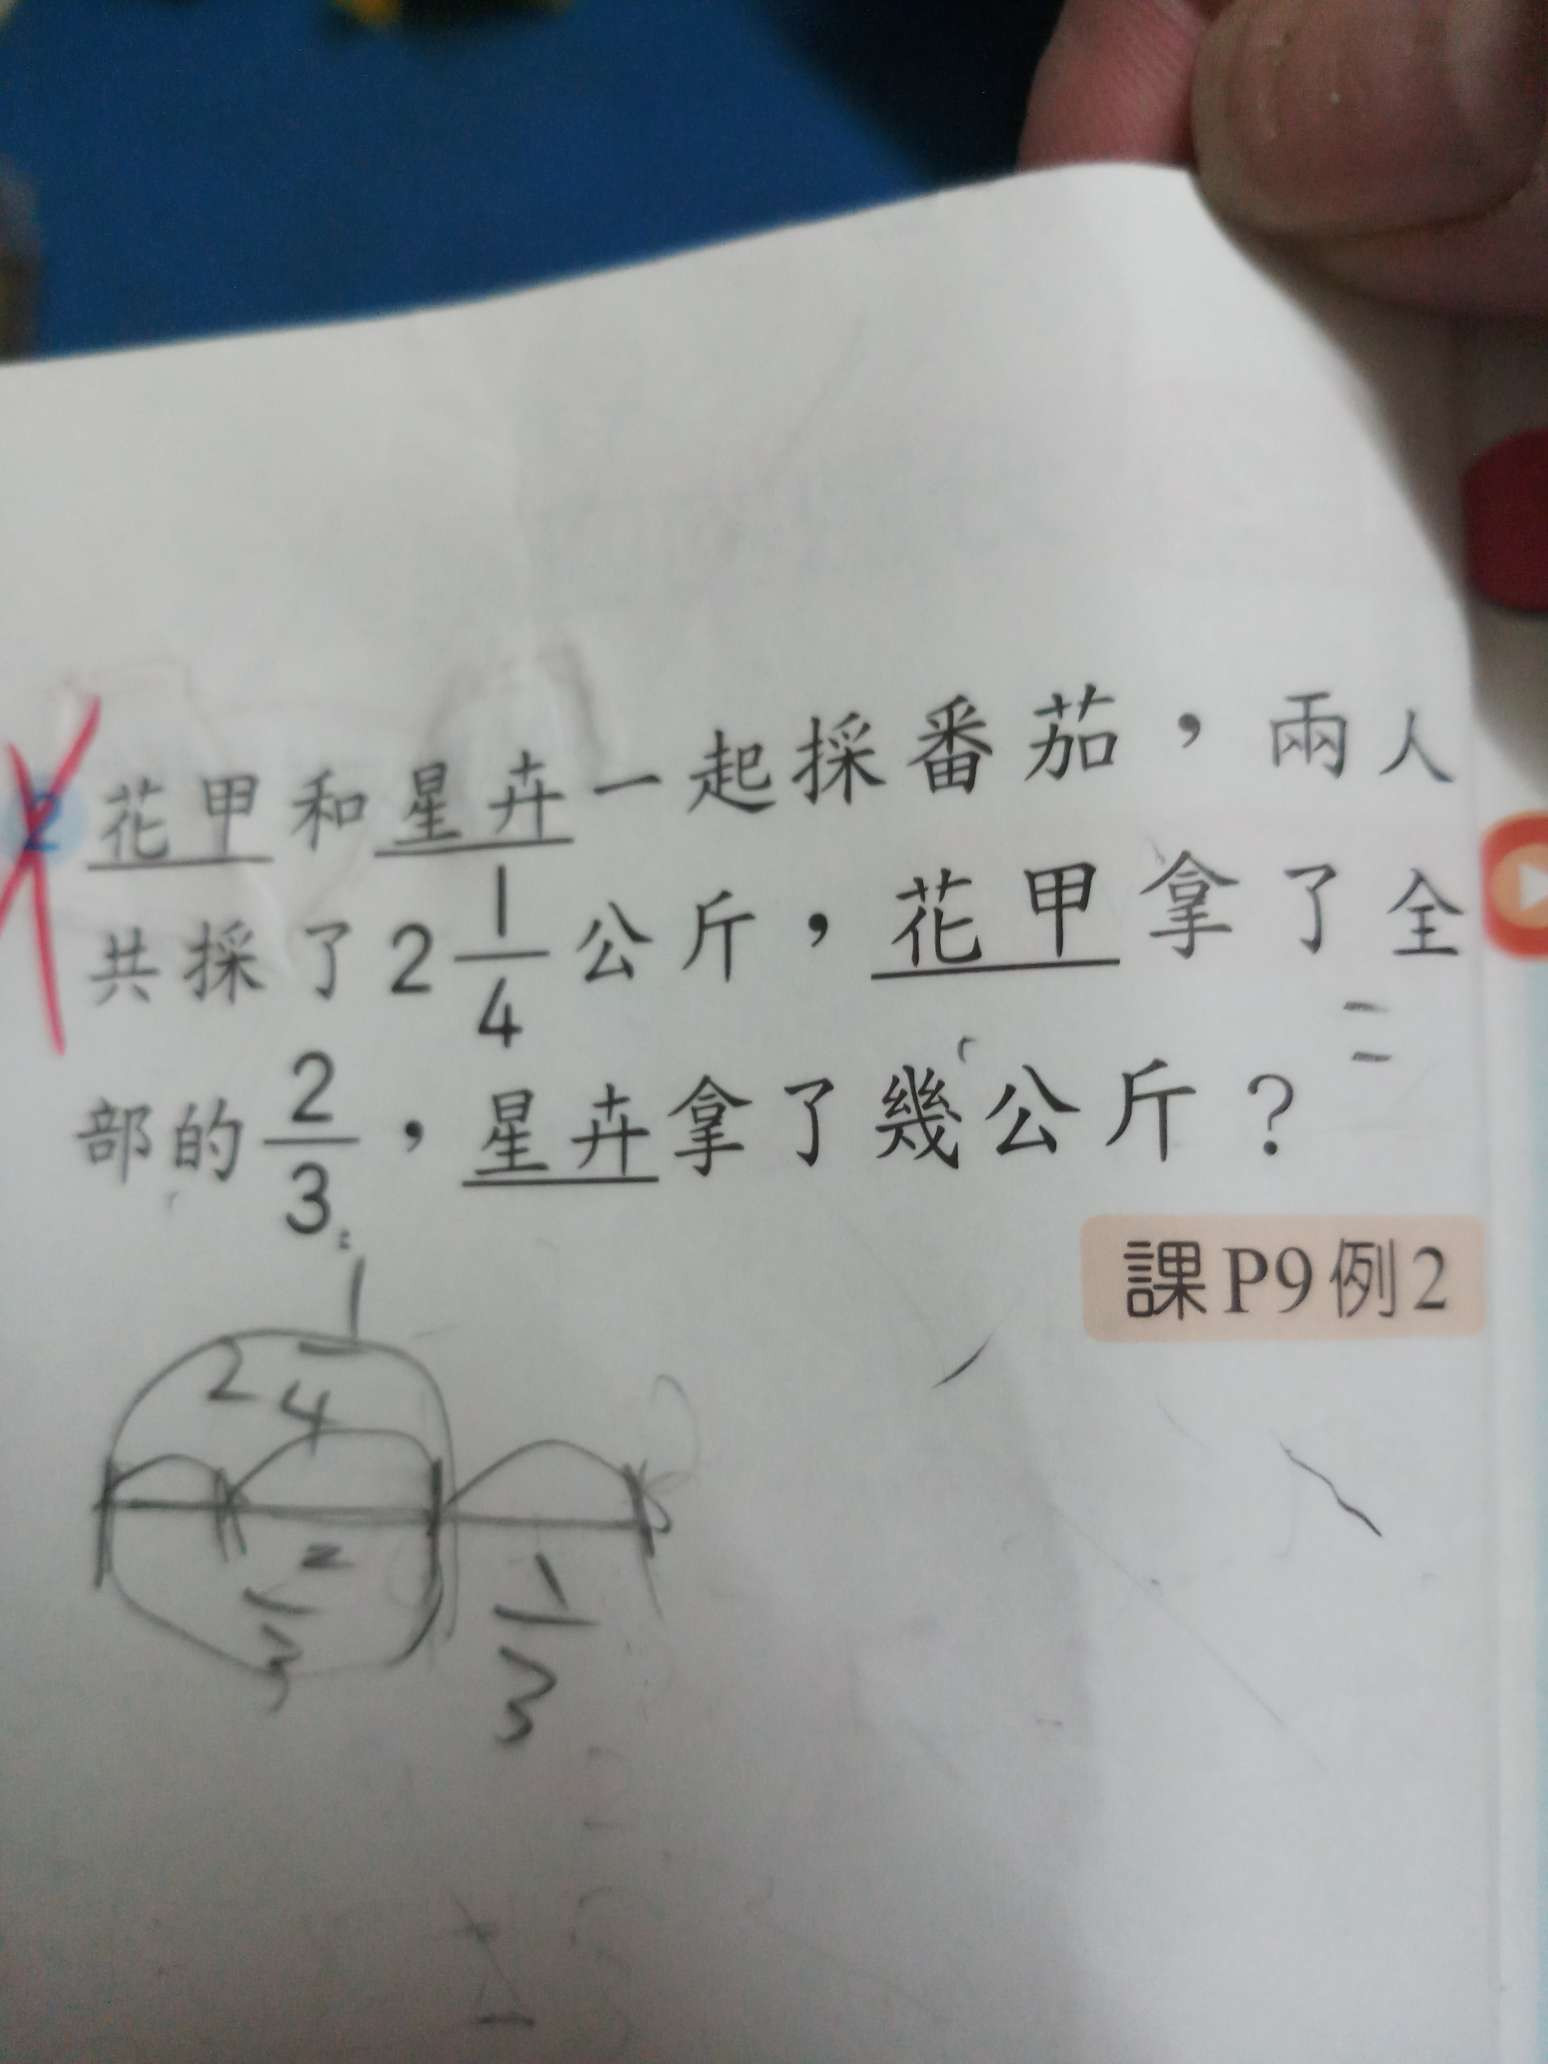 2 花甲和星卉一起採番茄，兩人
共採了2 1/4公斤，花甲拿了全
部的2/3，星卉拿了幾公斤？
課P9例2
2 1/4
2/3
1/3